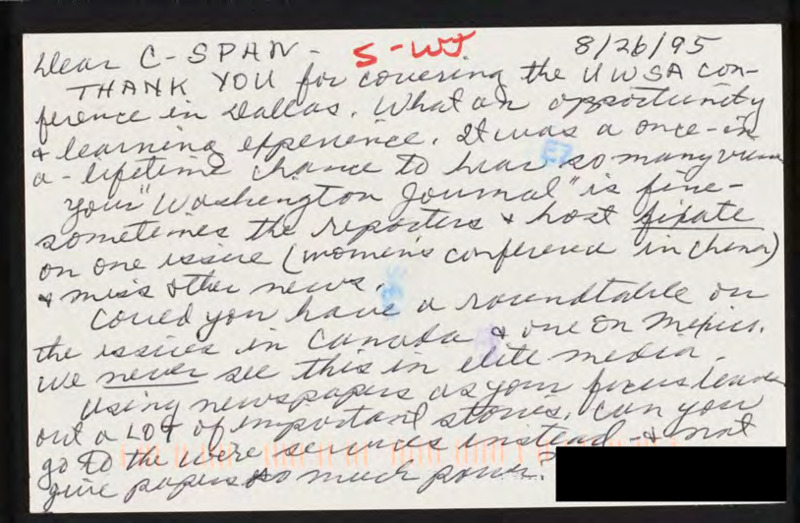 Dear C-SPAN - S-WJ 8/26/95
THANK YOU for covering the UWSA con-
ference in Dallas. What an opportunity
& learning experience. It was a once-in
a-lifetime chance to hear so many views
Your "Washington Journal" is fine-
sometimes the reporters & host fixate
on one issue (women's conference in China)
& miss other news.
Could you have a roundtable on
the issues in Canada & one on Mexico.
We never see this in elite media.
Using newspapers as your focus leaves
out a LOT of important stories. Can you
go to the wire services instead - & not
give papers so much power.